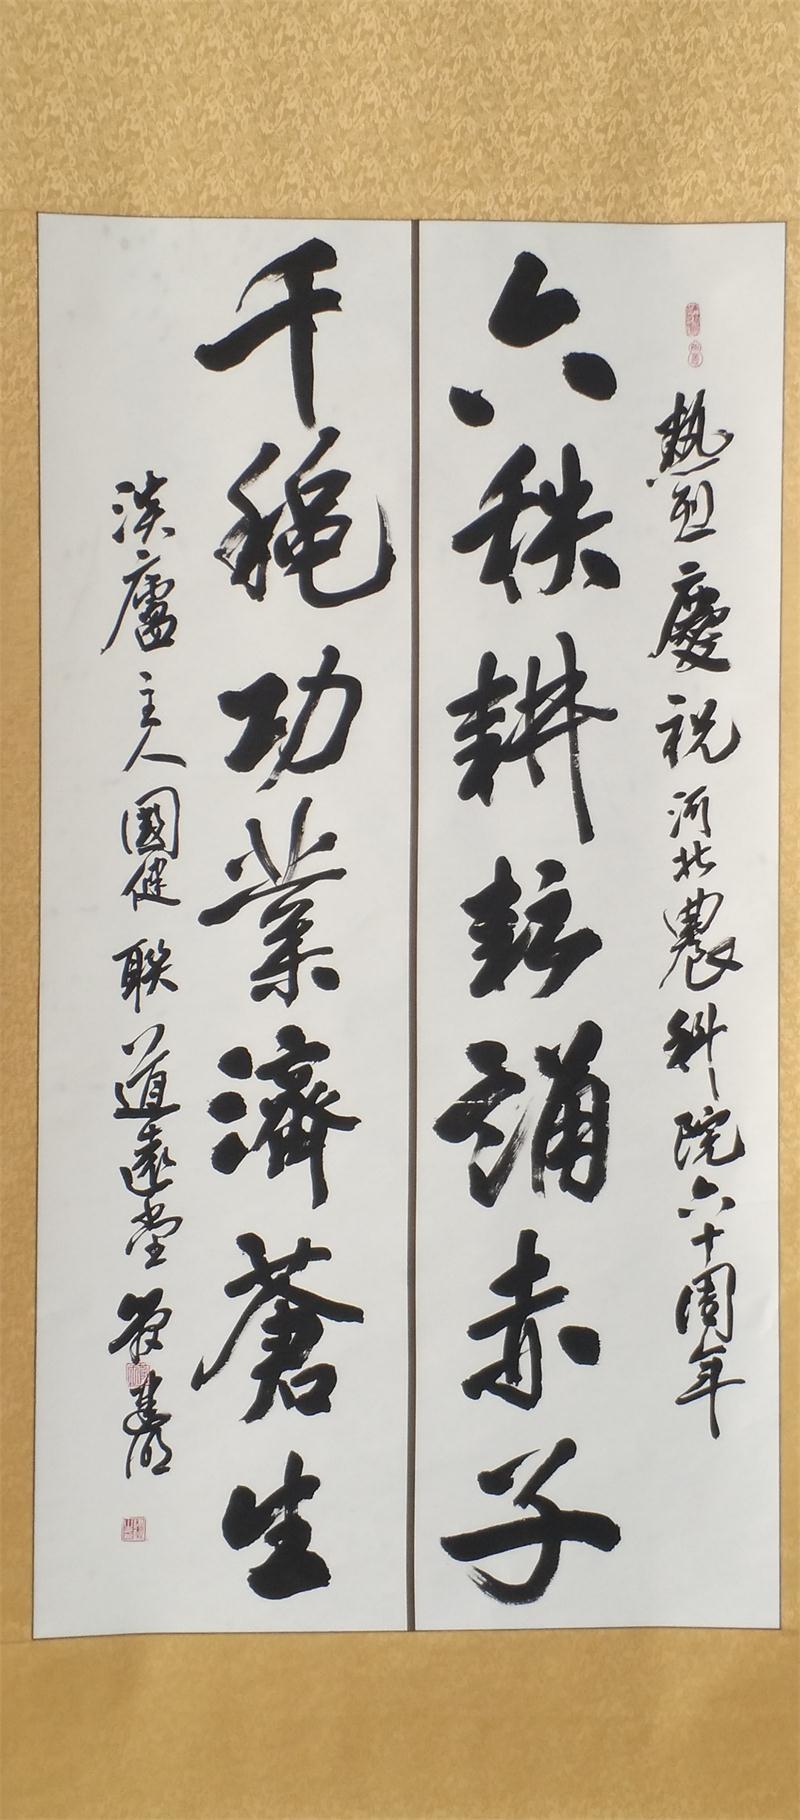 熱烈慶祝河北農科院六十周年
六秩耕耘誦赤子
千穐功業濟蒼生
淡廬主人國健聯道遠堂